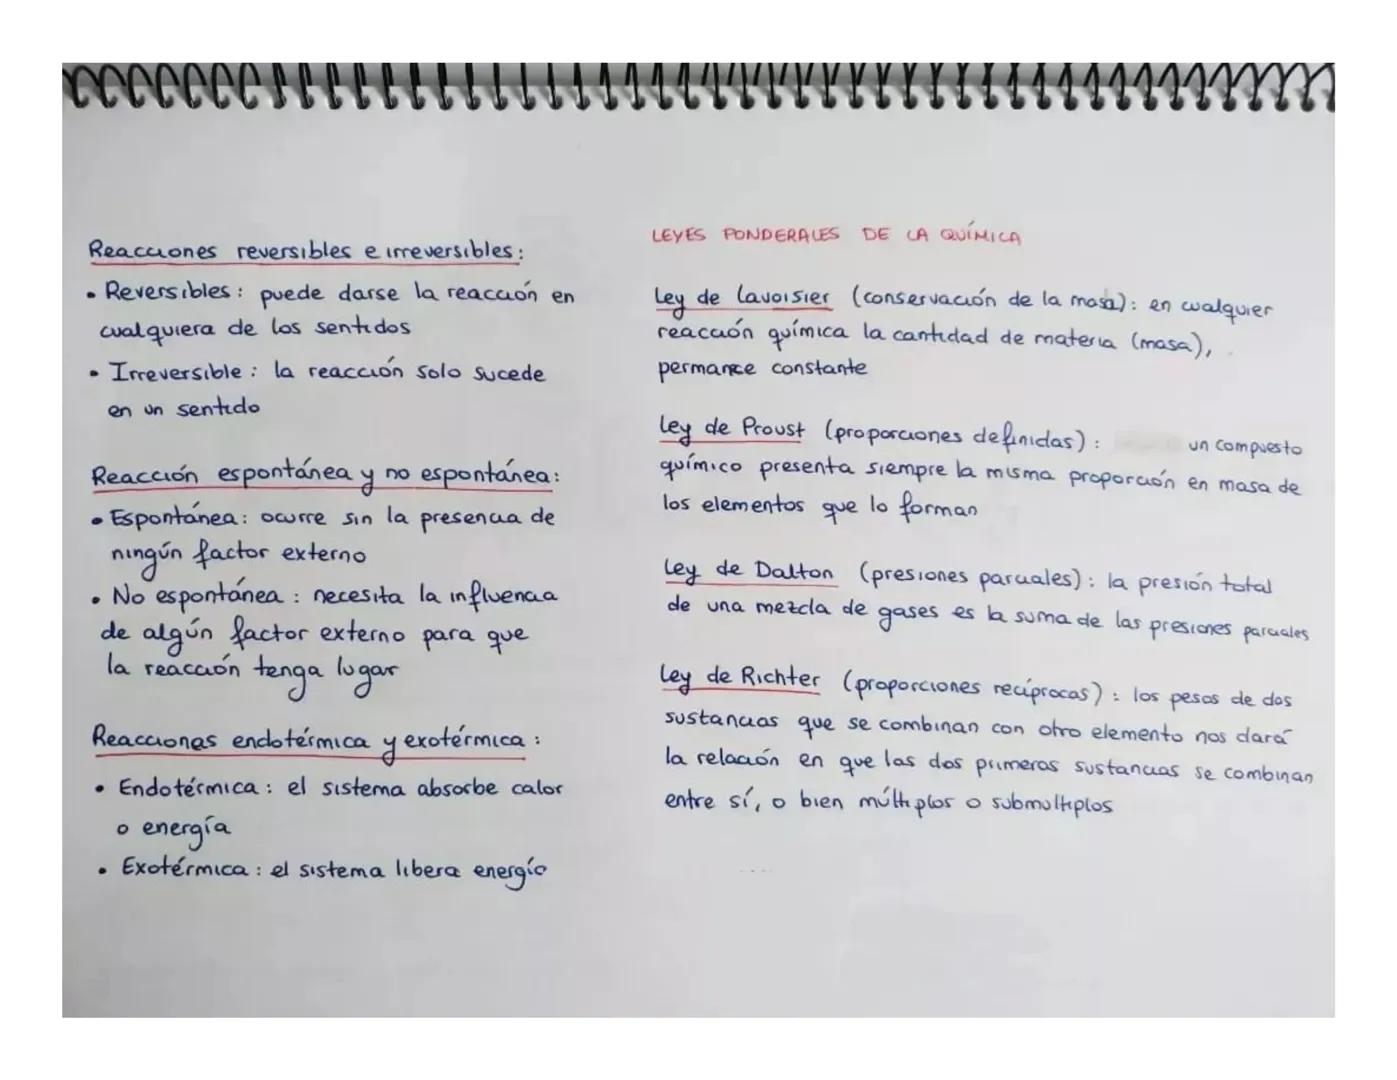 Reacciones reversibles e irreversibles:
• Reversibles: puede darse la reacción en
cualquiera de los sentidos
• Irreversible: la reacción solo sucede
en un sentido
Reacción espontánea y no espontánea:
• Espontánea: ocurre sin la presencia de
ningún factor externo
• No espontánea: necesita la influencia
de algún factor externo para que
la reacción tenga lugar
Reacciones endotérmica y exotérmica:
• Endotérmica: el sistema absorbe calor
o energía
• Exotérmica: el sistema libera energía
LEYES PONDERALES DE LA QUÍMICA
Ley de Lavoisier (conservación de la masa): en cualquier
reacción química la cantidad de materia (masa),
permance constante
Ley de Proust (proporciones definidas): un compuesto
químico presenta siempre la misma proporción en masa de
los elementos que lo forman
Ley de Dalton (presiones parciales): la presión total
de una mezcla de gases es la suma de las presiones parciales
Ley de Richter (proporciones recíprocas): los pesos de dos
sustancias que se combinan con otro elemento nos dará
la relación en que las dos primeras sustancias se combinan
entre sí, o bien múltiplos o submultiplos